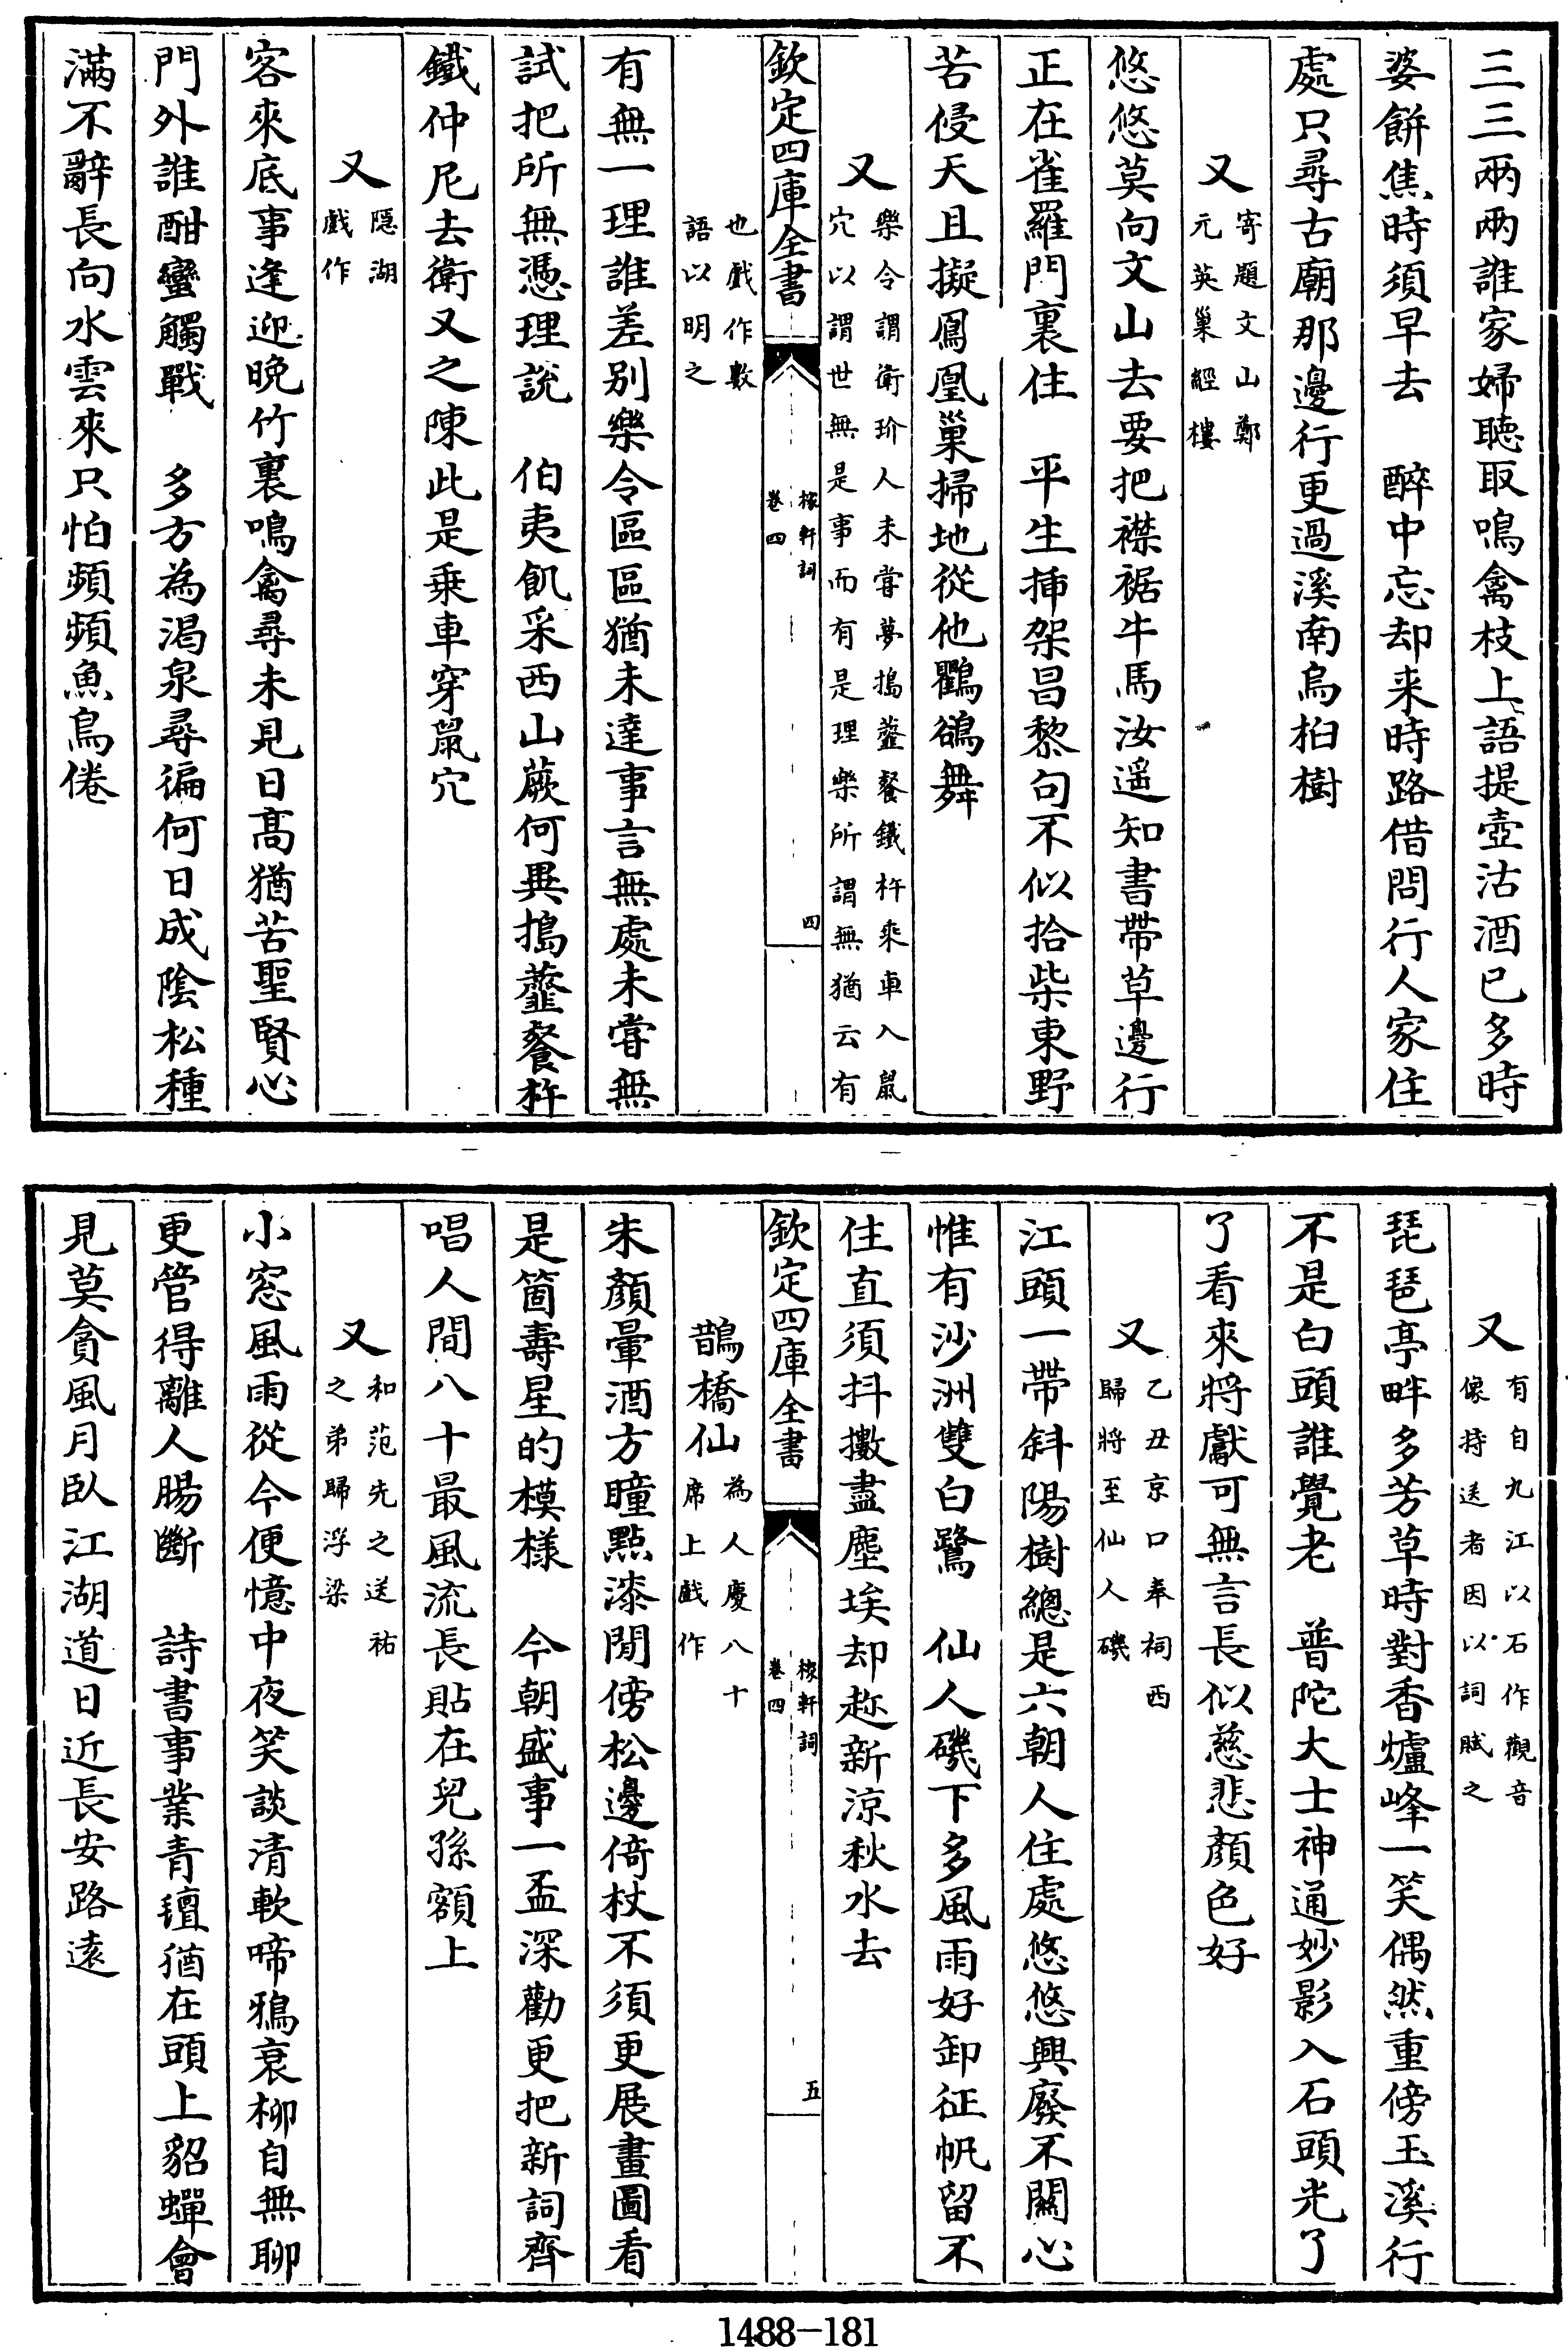 三三兩兩誰家婦聽取鳴禽枝上語提壺沽酒已多時
婆餅焦時須早去　醉中忘却来時路借問行人家住
處只尋古廟那邊行更過溪南烏桕樹
又　寄題文山鄭
元英巢經樓
悠悠莫向文山去要把襟裾牛馬汝遥知書帶草邊行
正在雀羅門裏住　平生揷架昌黎句不似拾柴東野
苦侵天且擬鳳凰巢掃地從他鸜鵒舞
又　樂令謂衛玠人未嘗夢搗虀餐鐵杵乘車入鼠
穴以謂世無是事而有是理樂所謂無猶云有
欽定四庫全書
稼軒詞
卷四
四
也戲作數
語以明之
有無一理誰差别樂令區區猶未達事言無處未嘗無
試把所無憑理說　伯夷飢采西山蕨何異搗虀餐杵
鐵仲尼去衛又之陳此是乗車穿鼠穴
又　隱湖
戲作
客來底事逢迎晚竹裏鳴禽尋未見日髙猶苦聖賢心
門外誰酣蠻觸戰　多方為渇泉尋徧何日成陰松種
滿不辭長向水雲來只怕頻頻魚鳥倦
又　有自九江以石作觀音
像持送者因以詞賦之
琵琶亭畔多芳草時對香爐峰一笑偶然重傍玉溪行
不是白頭誰覺老　普陀大士神通妙影入石頭光了
了看來將獻可無言長似慈悲顔色好
又　乙丑京口奉祠西
歸將至仙人磯
江頭一帶斜陽樹總是六朝人住處悠悠興廢不關心
惟有沙洲雙白鷺　仙人磯下多風雨好卸征帆留不
住直須抖擻盡塵埃却趂新涼秋水去
欽定四庫全書
稼軒詞
卷四
五
鵲橋仙　為人慶八十
席上戲作
朱顔暈酒方瞳㸃漆閒傍松邊倚杖不須更展畫圖看
是箇壽星的模様　今朝盛事一盃深勸更把新詞齊
唱人間八十最風流長貼在兒孫額上
又　和范先之送祐
之弟歸浮梁
小窓風雨從今便憶中夜笑談清軟啼鴉衰柳自無聊
更管得離人腸斷　詩書事業青氊猶在頭上貂蟬會
見莫貪風月臥江湖道日近長安路遠
1488-181